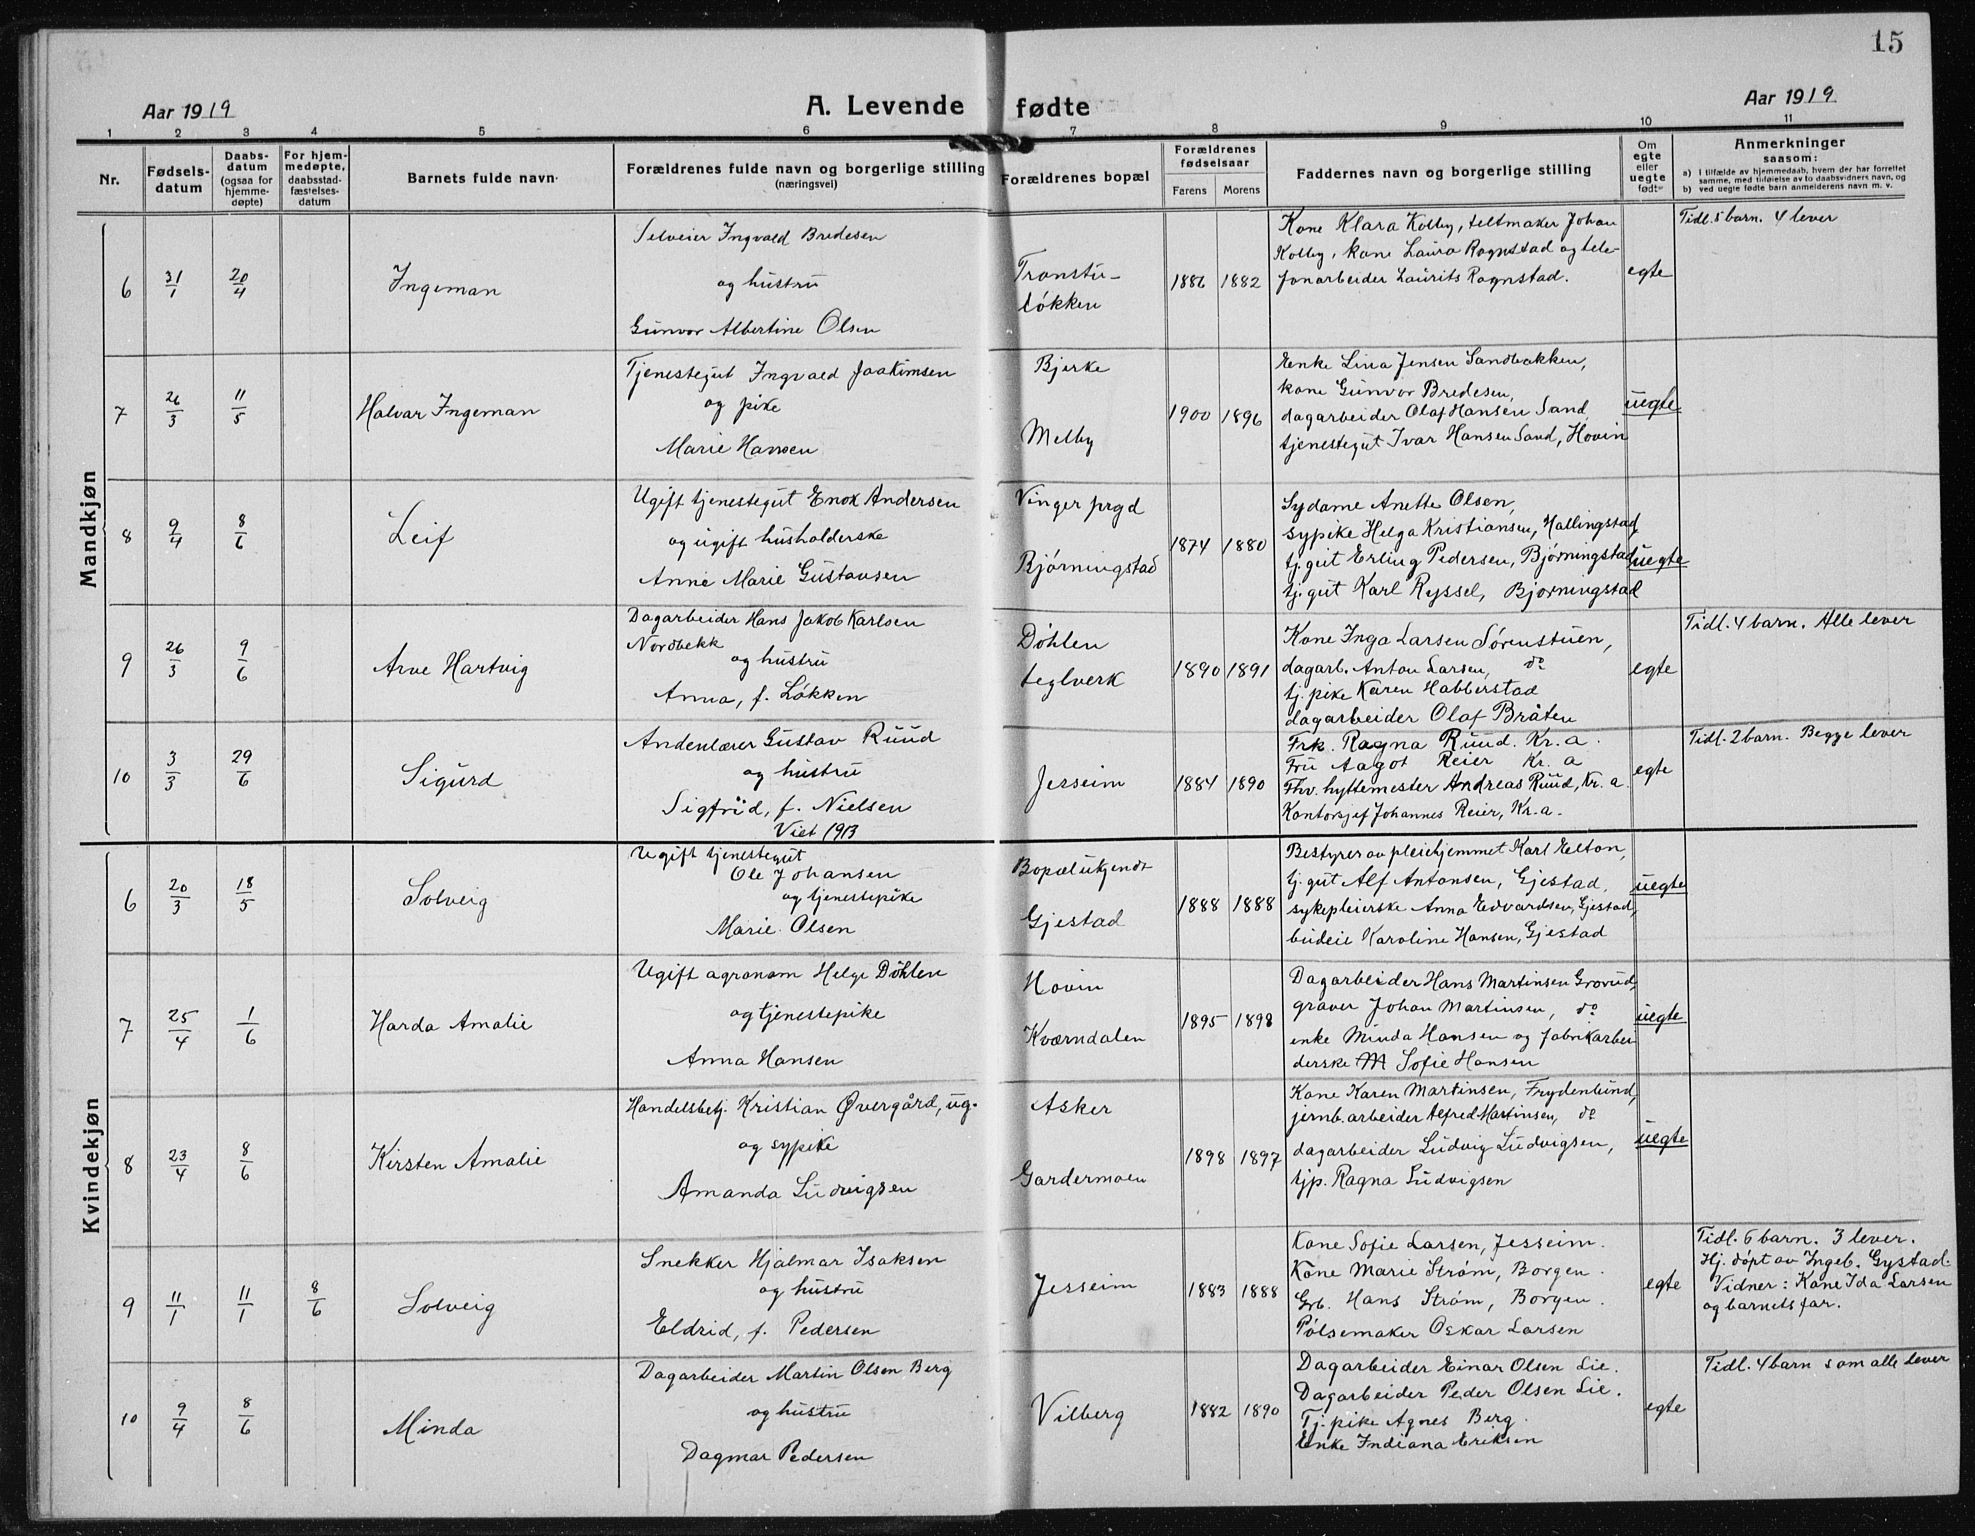 15
Aar 1919
A. Levende fødte
Aar 1919
1 2 3 4 5 6 7 8 9 10 11
Nr.
Fødsels-
datum
Daabs-
datum
(ogsaa for
hjemme-
døpte)
For hjem-
medøpte,
daabsstad-
fæstelses-
datum
Barnets fulde navn
Forældrenes fulde navn og borgerlige stilling
(næringsvei)
Forældrenes bopæl
Forældrenes
fødselsaar
Farens Morens
Faddernes navn og borgerlige stilling
Om
egte
eller
uegte
født
Anmerkninger
saasom:
a) I tilfælde av hjemmedaab, hvem der har forrettet
samme, med tilføielse av to daabsvidners navn, og
b) ved uegte fødte barn anmelderens navn m. v.
Mandkjøn
6 31/1 20/4
Ingeman
Selveier Ingvald Bredesen
og hustru
Gunvor Albertine Olsen
Transtu-
løkken
1886 1882
Kone Klara Kolby, teltmaker Johan
Kolby, kone Laura Rognstad og tele-
fonarbeider Laurits Rognstad.
egte
Tidl. 5 barn. 4 lever
7 26/3 11/5
Halvar Ingeman
Tjenestegut Ingvald Joakimsen
og pike
Marie Hansen
Bjerke
Melby
1900 1896
Enke Lina Jensen Sandbakken,
kone Gunvor Bredesen,
dagarbeider Olaf Hansen Sand
tjenestegut Ivar Hansen Sand, Hovin
uegte
8 9/4 8/6
Leif
Ugift tjenestegut Enok Andersen
og ugift husholderske
Anne Marie Gustavsen
Vinger prgd
Bjørningstad
1874 1880
Sydame Anette Olsen,
sypike Helga Kristiansen, Hallingstad,
tj. gut Erling Pedersen, Bjørningstad
tj. gut Karl Ryssel, Bjørningstad
uegte
9 26/3 9/6
Arve Hartvig
Dagarbeider Hans Jakob Karlsen
Nordbekk
og hustru
Anna, f. Løkken
Døhlen
teglverk
1890 1891
Kone Inga Larsen Sørenstuen,
dagarb. Anton Larsen, do
tj. pike Karen Habberstad
dagarbeider Olaf Bråten
egte
Tidl. 4 barn. Alle lever
10 3/3 29/6
Sigurd
Andenlærer Gustav Ruud
og hustru
Sigfrid, f. Nielsen
Viet 1913
Jesseim
1884 1890
Frk. Ragna Ruud. Kr.a.
Fru Aagot Reier Kr. a
Fhv. hyttemester Andreas Ruud, Kr. a.
Kontorsjef Johannes Reier, Kr.a.
egte
Tidl. 2 barn. Begge lever
Kvindekjøn
6 20/3 18/5
Solveig
Ugift tjenestegut
Ole Johansen
og tjenestepike
Marie Olsen
Bopæl ukjendt
Gjestad
1888 1888
Bestyrer av pleiehjemmet Karl Elton,
tj. gut Alf Antonsen, Gjestad,
sykepleierske Anna Edvardsen, Gjestad,
budeie Karoline Hansen, Gjestad
uegte
7 25/4 1/6
Harda Amalie
Ugift agronom Helge Døhlen
og tjenestepike
Anna Hansen
Hovin
Kværndalen
1895 1898
Dagarbeider Hans Martinsen Grorud,
graver Johan Martinsen, do
enke Minda Hansen og fabrikarbei-
derske M Sofie Hansen
uegte
8 23/4 8/6
Kirsten Amalie
Handelsbetj. Kristian Øvergård, ug.
og sypike
Amanda Ludvigsen
Asker
Gardermoen
1898 1897
Kone Karen Martinsen, Frydenlund,
jernb. arbeider Alfred Martinsen, do
dagarbeider Ludvig Ludvigsen,
tjp. Ragna Ludvigsen
uegte
9 11/1 11/1 8/6
Solveig
Snekker Hjalmar Isaksen
og hustru
Eldrid, f. Pedersen
Jesseim
1883 1888
Kone Sofie Larsen, Jesseim.
Kone Marie Strøm, Borgen.
Grb. Hans Strøm, Borgen.
Pølsemaker Oskar Larsen
egte
Tidl. 6 barn. 3 lever.
Hj. døpt av Ingeb. Gystad.
Vidner: Kone Ida Larsen
og barnets far.
10 9/4 8/6
Minda
Dagarbeider Martin Olsen Berg
og hustru
Dagmar Pedersen
Vilberg
1882 1890
Dagarbeider Einar Olsen Lie.
Dagarbeider Peder Olsen Lie.
Tj. pike Agnes Berg.
Enke Indiana Eriksen
egte
Tidl. 4 barn som alle lever